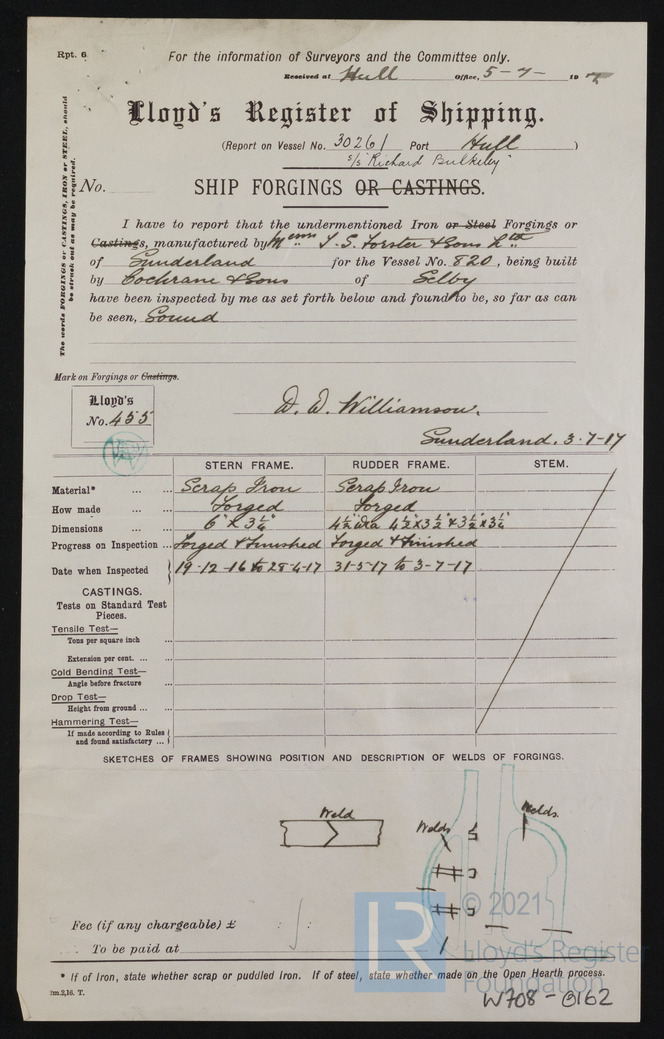 Rpt. 6
For the information of Surveyors and the Committee only.
Received at Hull Office, 5-7- 19
Lloyd's Register of Shipping.
(Report on Vessel No. 30261 Port Hull )
s/s "Richard Bulkeley"
No.
SHIP FORGINGS OR CASTINGS.
The words FORGINGS or CASTINGS, IRON or STEEL, should
be struck out as may be required.
I have to report that the undermentioned Iron or Steel Forgings or
Castings, manufactured by Messrs T. S. Forster & Sons Ltd
of Sunderland for the Vessel No. 820, being built
by Cochrane & Sons of Selby
have been inspected by me as set forth below and found to be, so far as can
be seen, Sound
Mark on Forgings or Castings.
Lloyd's
No. 455
D. D. Williamson.
Sunderland. 3-7-17
STERN FRAME. RUDDER FRAME. STEM.
Material* ... ... Scrap Iron Scrap Iron
How made ... ... Forged Forged
Dimensions ... ... 6" x 3¼" 4½" dia 4½" x 3½" & 3½" x 3¼"
Progress on Inspection ... Forged & Finished Forged & Finished
Date when Inspected 19-12-16 to 28-4-17 31-5-17 to 3-7-17
CASTINGS.
Tests on Standard Test
Pieces.
Tensile Test—
Tons per square inch ...
Extension per cent. ... ...
Cold Bending Test—
Angle before fracture ...
Drop Test—
Height from ground ... ...
Hammering Test—
If made according to Rules
and found satisfactory ...
SKETCHES OF FRAMES SHOWING POSITION AND DESCRIPTION OF WELDS OF FORGINGS.
Weld
Welds
Welds.
Fee (if any chargeable) £ : :
To be paid at
* If of Iron, state whether scrap or puddled Iron. If of steel, state whether made on the Open Hearth process.
2m.2,16. T.
LR
© 2021
Lloyd's Register
Foundation
W708-0162